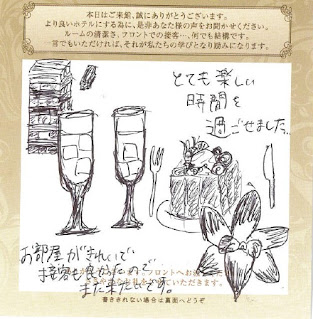 本日はご来館、誠にありがとうございます。
より良いホテルにする為に、是非あなた様の声をお聞かせください。
ルームの清潔さ、フロントでの接客…何でも結構です。
言でもいただければ、それが私たちの学びとなり励みになります。
とても楽しい
時間を
過ごせました。
お部屋がきれいで
接客も良かったので
また来たいです。
フロントへお
いただきます。
書ききれない場合は裏面へどうぞ